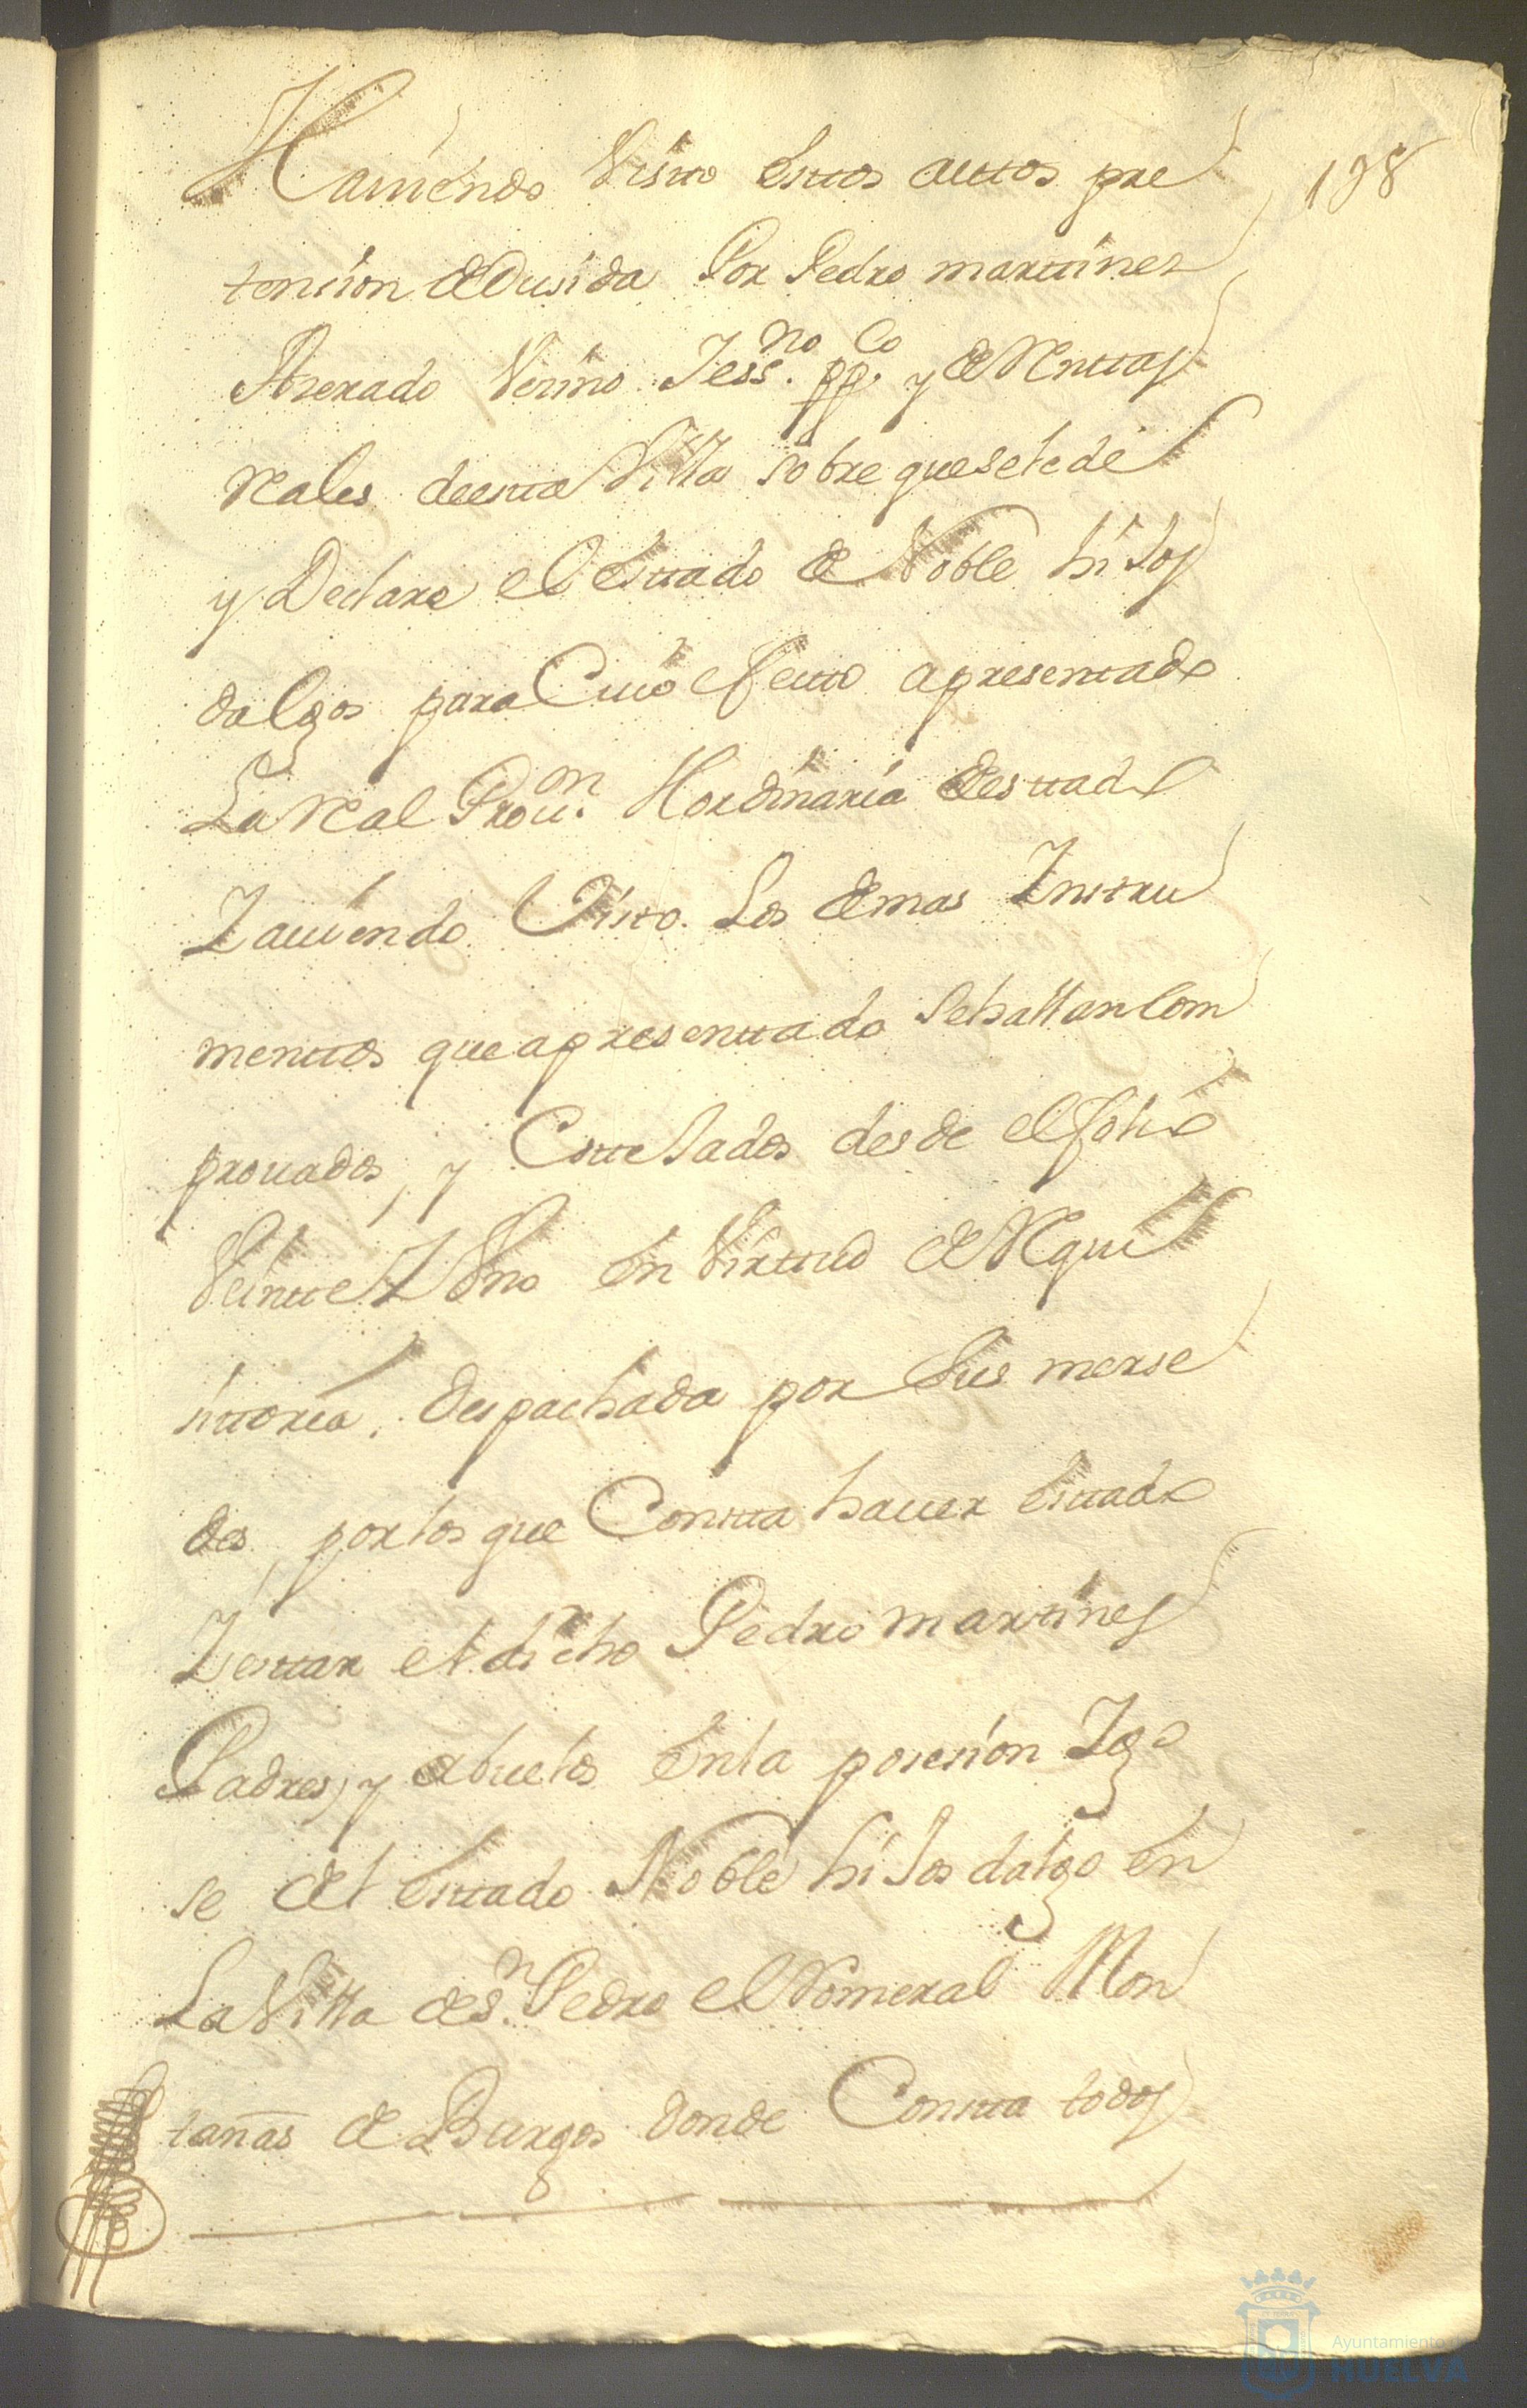 Haviendo Visto estos auttos pre
198
tencion dedusida Por Pedro marttines
Vecino Tess.no pp.co y de Renttas
reales de esta Villa sobre que se le dé
y Declare el esttado de Noble hijos
dalgos para Cuio efecto apresentado
La real Prou.on Hordinaria de esttado
Y auiendo Visto. Los demas Instru
menttos que apresenttado se hallan Com
prouados, y Cottejados desde el folio
Veintte Y Vno en Virttud de Requi
sittoria, despachada por sus merse
des, por los que Constta hauer esttado
Y esttar el dicho Pedro marttines
Padres, y abuelos en la posesion Y go
se del esttado Noble hijos dalgo en
La Villa de S.n Pedro el Romeral Mon
tañas de Burgos donde Constta todos
Ayuntamiento de
HUELVA